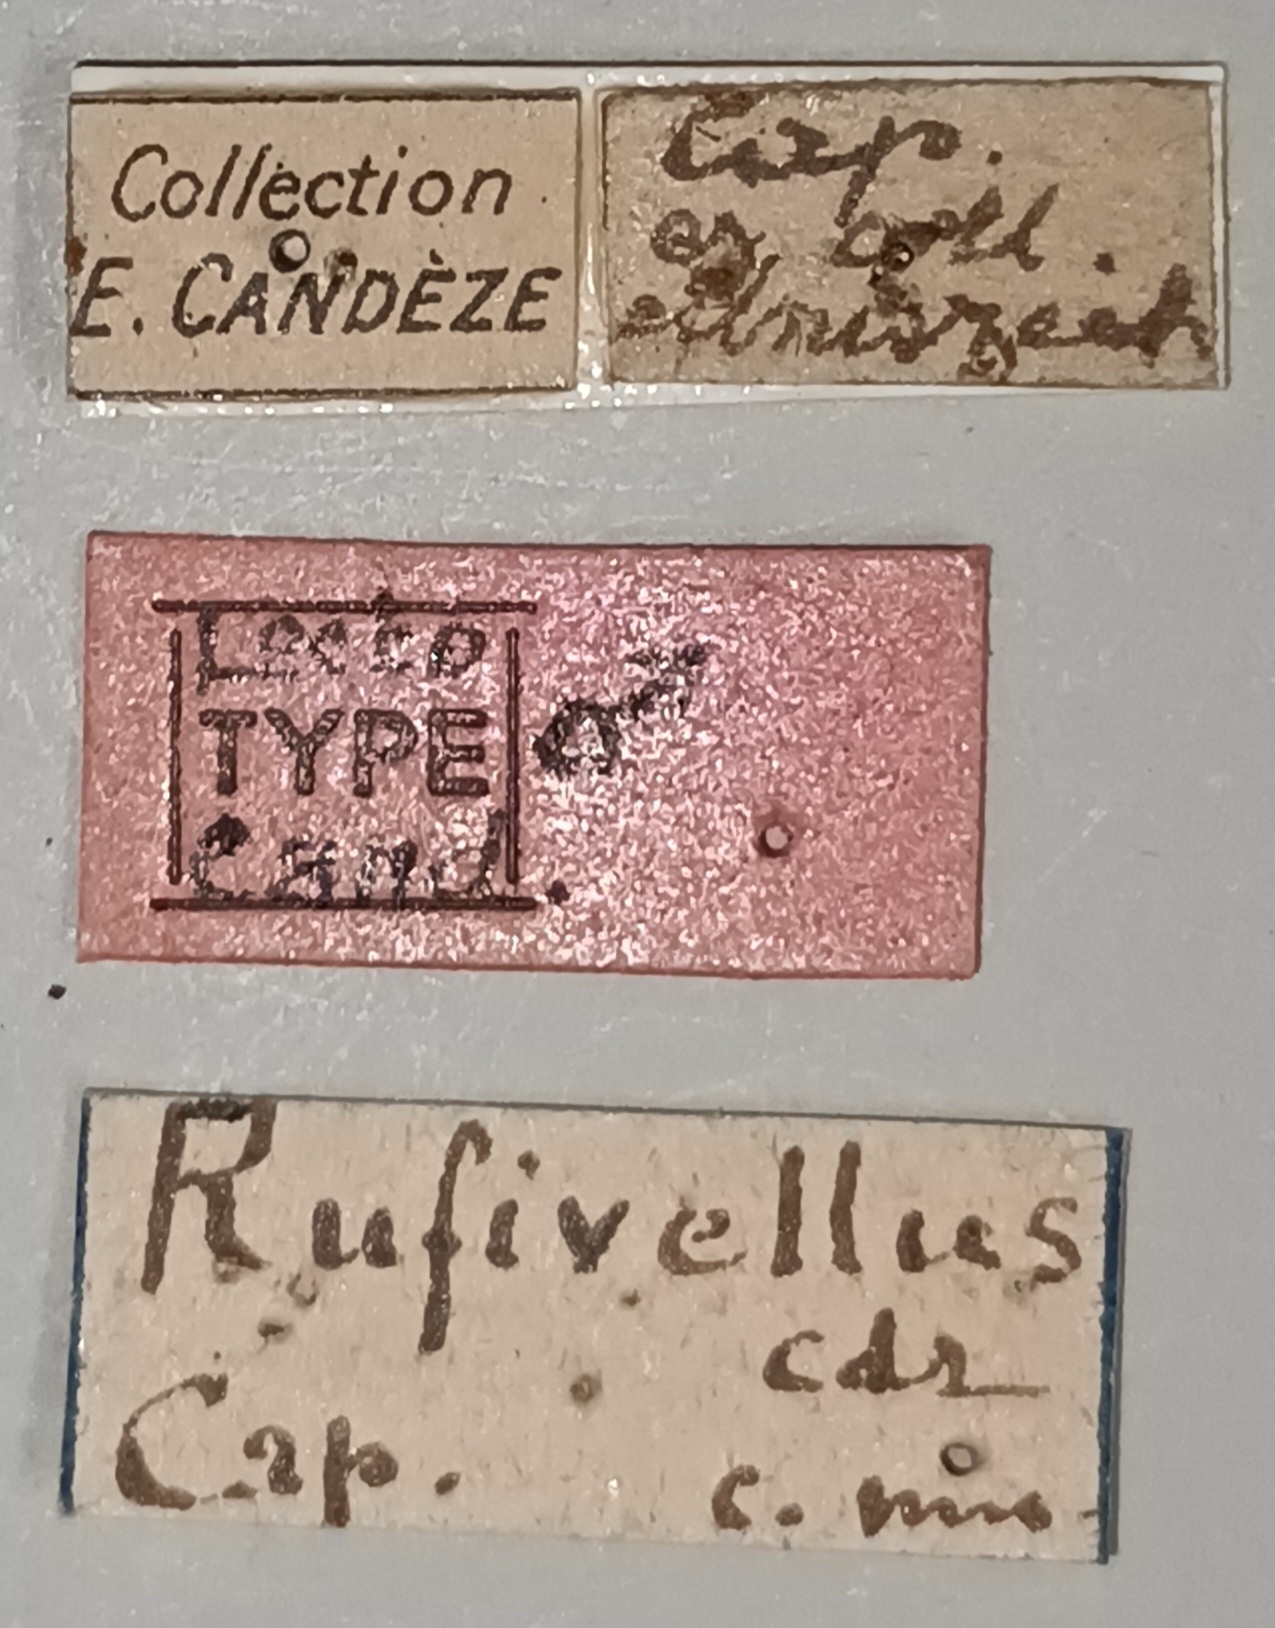 Collection
E. CANDÈZE
Cap.
ex coll.
Mniszech
Lecto
TYPE ♂
Cand.
Rufivellus
cdz
Cap. c. mn